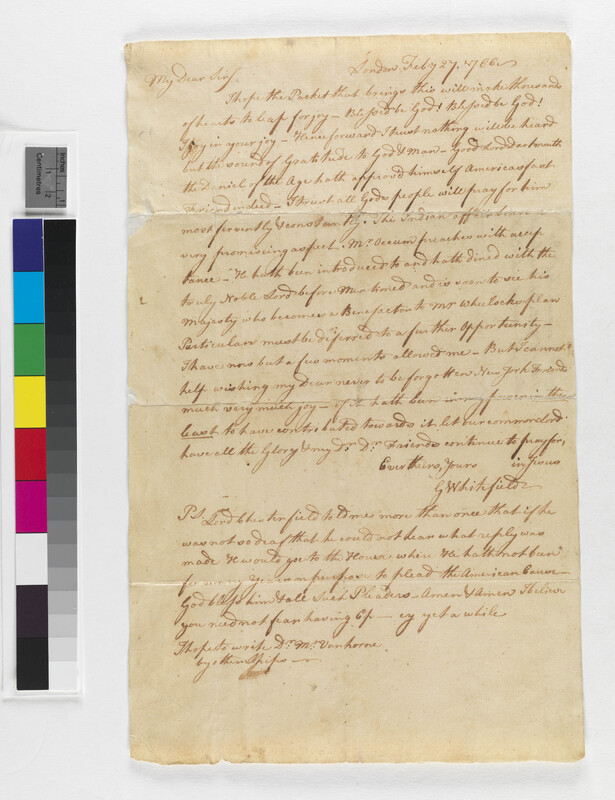 London, Feby 27, 1766
My Dear Sirs,
I hope the Packet that brings this will make thousands
of hearts to leap for joy — Blessed be God! Blessed be God!
I joy in your joy — Henceforward I trust nothing will be heard
but the sound of Gratitude to God & Man — Good Lord Dartmouth
the Daniel of the Age hath approv'd himself America's fast
Friend indeed — I trust all Gods people will pray for him
most fervently & constantly. The Indian affair bears a
very promising aspect. Mr. Occum preaches with accep
tance — He hath been introduced to and hath dined with the
truly Noble Lord before Mentioned and is soon to see his
Majesty who becomes a Benefactor to Mr Wheelocks plan
Particulars must be deferred to a further Opportunity —
I have now but a few moments allowed me — But I cannot
help wishing my Dear never to be forgotten New York Friends
much very much joy — If it hath been in my power in the
least to have contributed towards it let our common Lord
have all the Glory & my Dr. Dr. Friends continue to pray for,
Ever theirs, Yours in Jesus
G Whitefield
PS. Lord Chesterfield told me more than once that if he
was not so deaf that he could not hear what reply was
made He would go to the House where He hath not been
for many Years on purpose to plead the American Cause —
God bless him & all such Pleaders — Amen & Amen I believe
you need not fear having Ep — cy yet a while
I hope to write Dr. Mr. Vanhorne
by other Ships —
Inches
1
2
Centimetres